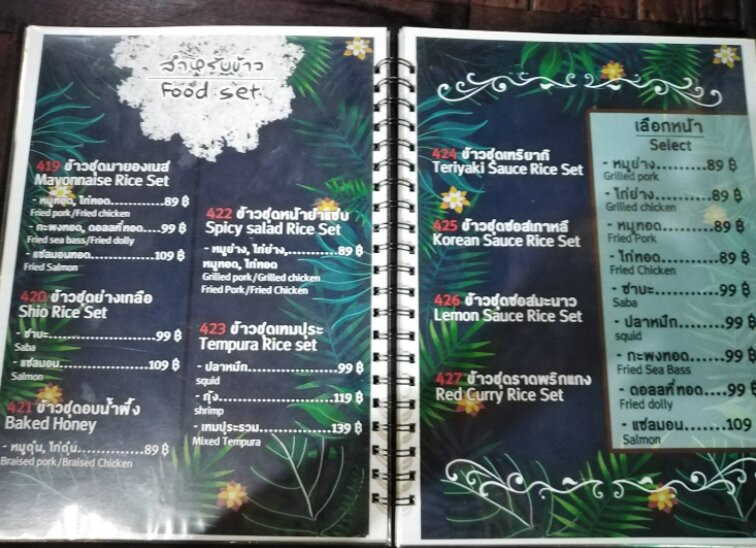 สำหรับข้าว
Food set
419 ข้าวชุดมายองเนส
Mayonnaise Rice Set
- หมูทอด, ไก่ทอด..........89 ฿
Fried pork/Fried chicken
- กะพงทอด, ดอลลี่ทอด....99 ฿
Fried sea bass/Fried dolly
- แซลมอนทอด.............109 ฿
Fried Salmon
420 ข้าวชุดย่างเกลือ
Shio Rice Set
- ซาบะ......................99 ฿
Saba
- แซลมอน...............109 ฿
Salmon
421 ข้าวชุดอบน้ำผึ้ง
Baked Honey
- หมูตุ๋น, ไก่ตุ๋น..........89 ฿
Braised pork/Braised Chicken
422 ข้าวชุดหน้ายำแซ่บ
Spicy salad Rice Set
- หมูย่าง, ไก่ย่าง,...........89 ฿
หมูทอด, ไก่ทอด
Grilled pork/Grilled chicken
Fried Pork/Fried Chicken
423 ข้าวชุดเทมปุระ
Tempura Rice set
- ปลาหมึก...................99 ฿
squid
- กุ้ง.........................119 ฿
shrimp
- เทมปุระรวม............139 ฿
Mixed Tempura
424 ข้าวชุดเทริยากิ
Teriyaki Sauce Rice Set
425 ข้าวชุดซอสเกาหลี
Korean Sauce Rice Set
426 ข้าวชุดซอสมะนาว
Lemon Sauce Rice Set
427 ข้าวชุดราดพริกแกง
Red Curry Rice Set
เลือกหน้า
Select
- หมูย่าง...........89 ฿
Grilled pork
- ไก่ย่าง............89 ฿
Grilled chicken
- หมูทอด...........89 ฿
Fried Pork
- ไก่ทอด............89 ฿
Fried Chicken
- ซาบะ..............99 ฿
Saba
- ปลาหมึก.........99 ฿
squid
- กะพงทอด.......99 ฿
Fried Sea Bass
- ดอลลี่ทอด.....99 ฿
Fried dolly
- แซลมอน........109
Salmon